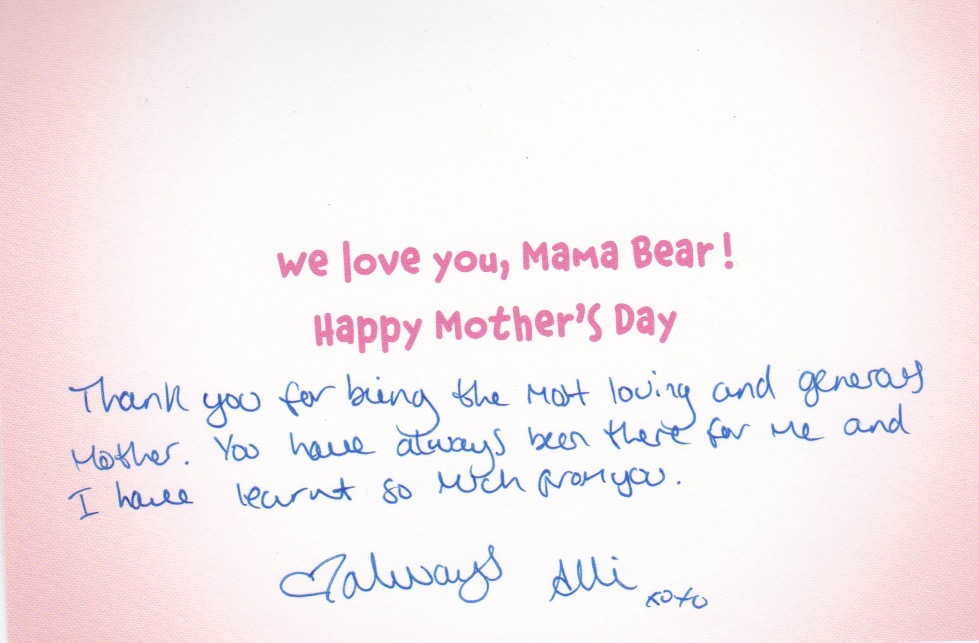 We love you, Mama Bear!
Happy Mother's Day
Thank you for being the most loving and generous
Mother. You have always been there for me and
I have learnt so much from you.
♡always Alli xoxo